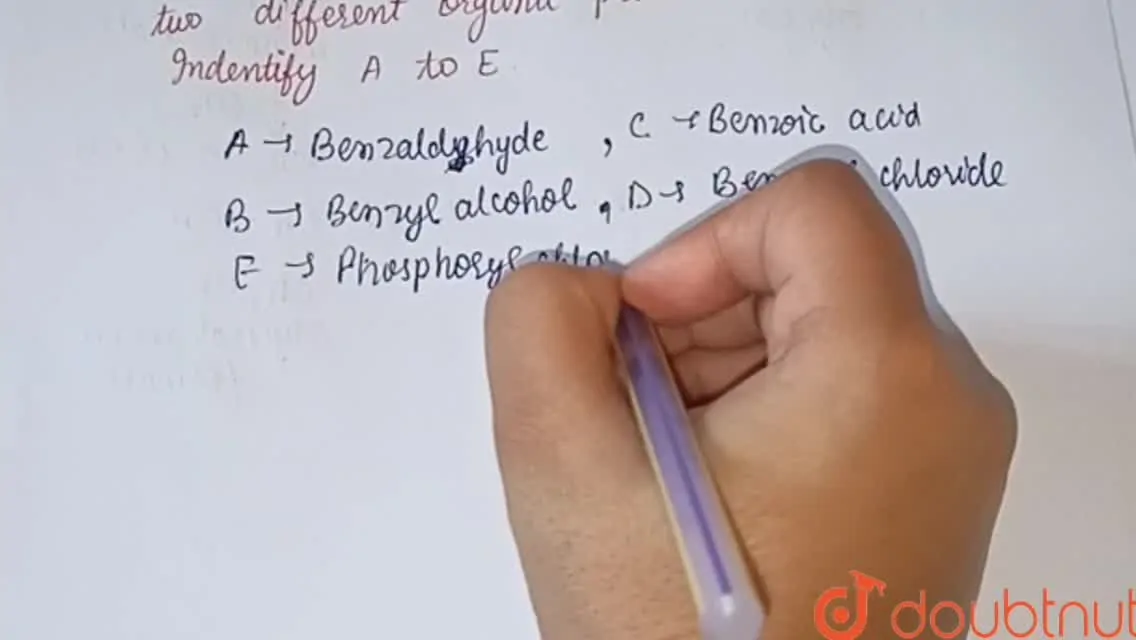 two different
Indentify A to E
A → Benzaldyhyde , C → Benzoic acid
B → Benzyl alcohol , D → chloride
E → Phosphoryl
doubtnut